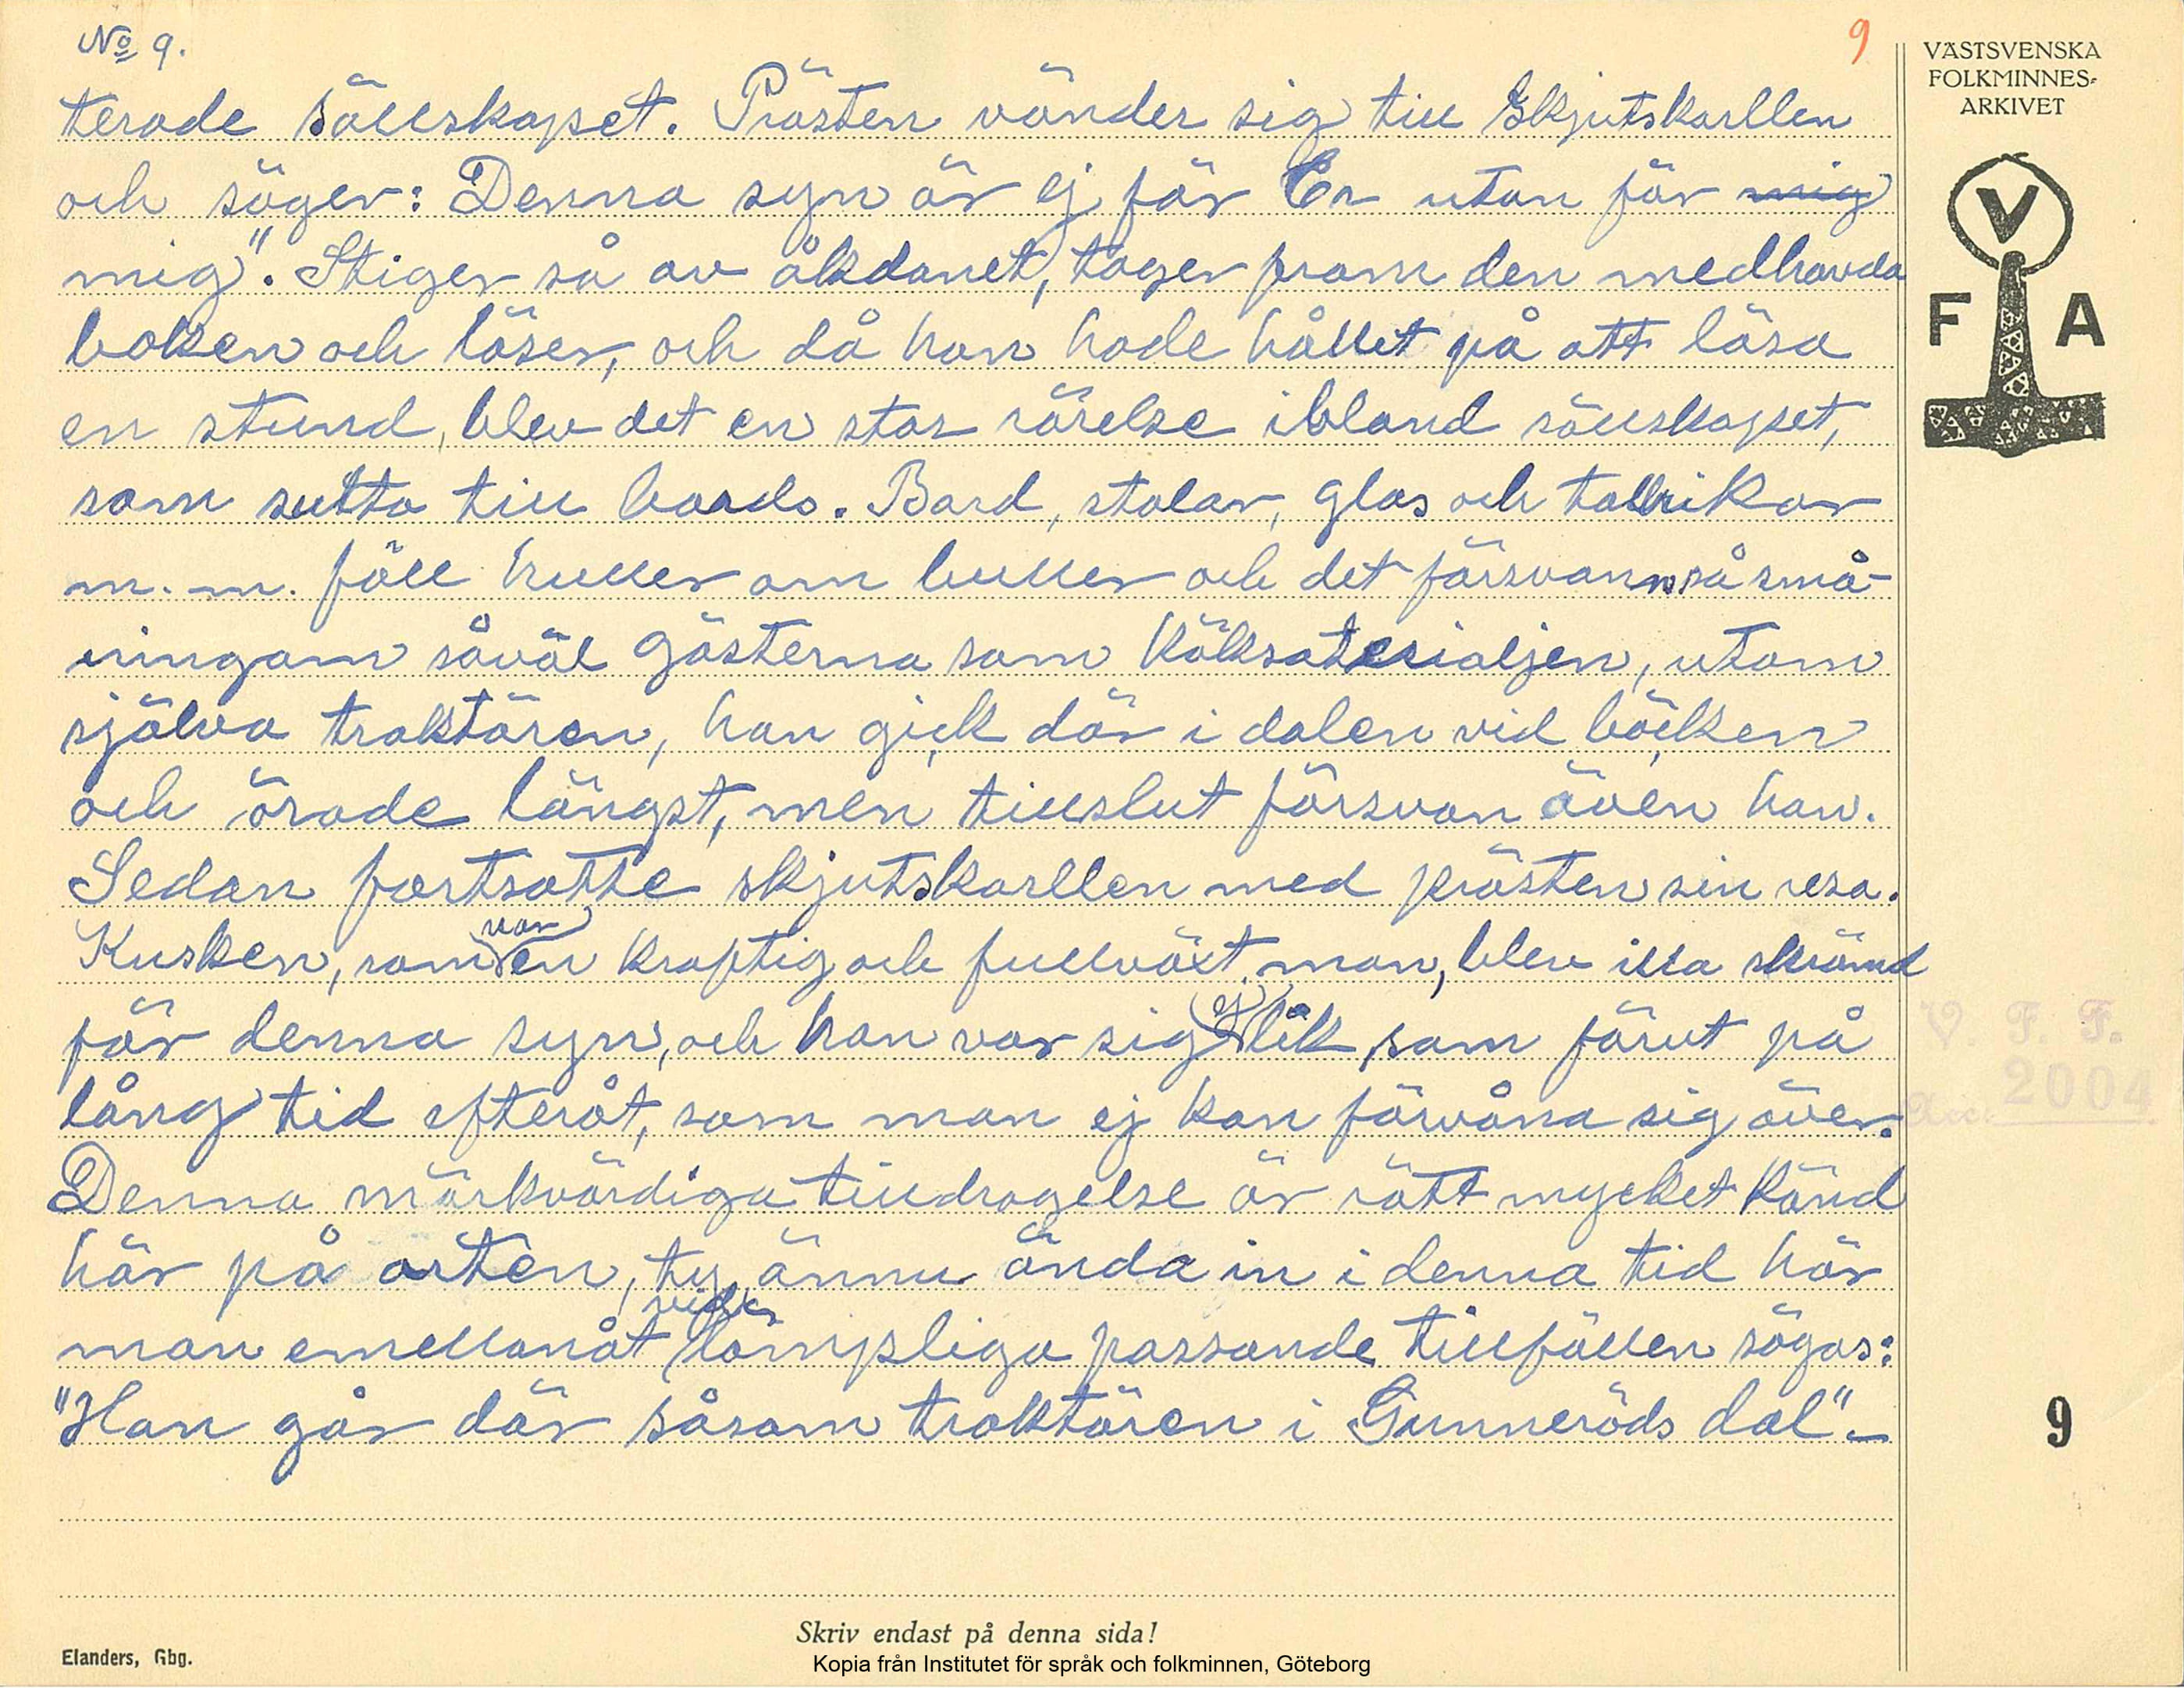 No 9.
9
VÄSTSVENSKA
FOLKMINNES-
ARKIVET
V
F A
terade sällskapet. Prästen vänder sig till Skjutskarllen
och säger: Denna syn är ej för Er utan för mig
mig". Stiger så av åkdonet, tager fram den medhavda
boken och läser, och då han hade hållet på att läsa
en stund, blev det en stor rörelse ibland sällskapet,
som sutto till bords. Bord, stolar, glas och tallrikar
m. m. föll huller om buller och det försvann så små-
ningom såväl gästerna som köksaterialjen, utom
själva traktören, han gick där i dalen vid bäcken
och örade längst, men tillslut försvan även han.
Sedan fortsatte skjutskarllen med prästen sin resa.
Kusken, som var en kraftig och fullväxt man, blev illa skrämd
för denna syn, och han var sig ej lik som förut på
lång tid efteråt, som man ej kan förvåna sig över.
Denna märkvärdiga tilldragelse är rätt mycket känd
här på orten, ty ännu ända in i denna tid hör
man emellanåt vid lämpliga passande tillfällen sägas:
"Han går där såsom traktören i Gunneröds dal".-
V. F. F.
Acc. 2004
9
Skriv endast på denna sida!
Elanders, Gbg.
Kopia från Institutet för språk och folkminnen, Göteborg